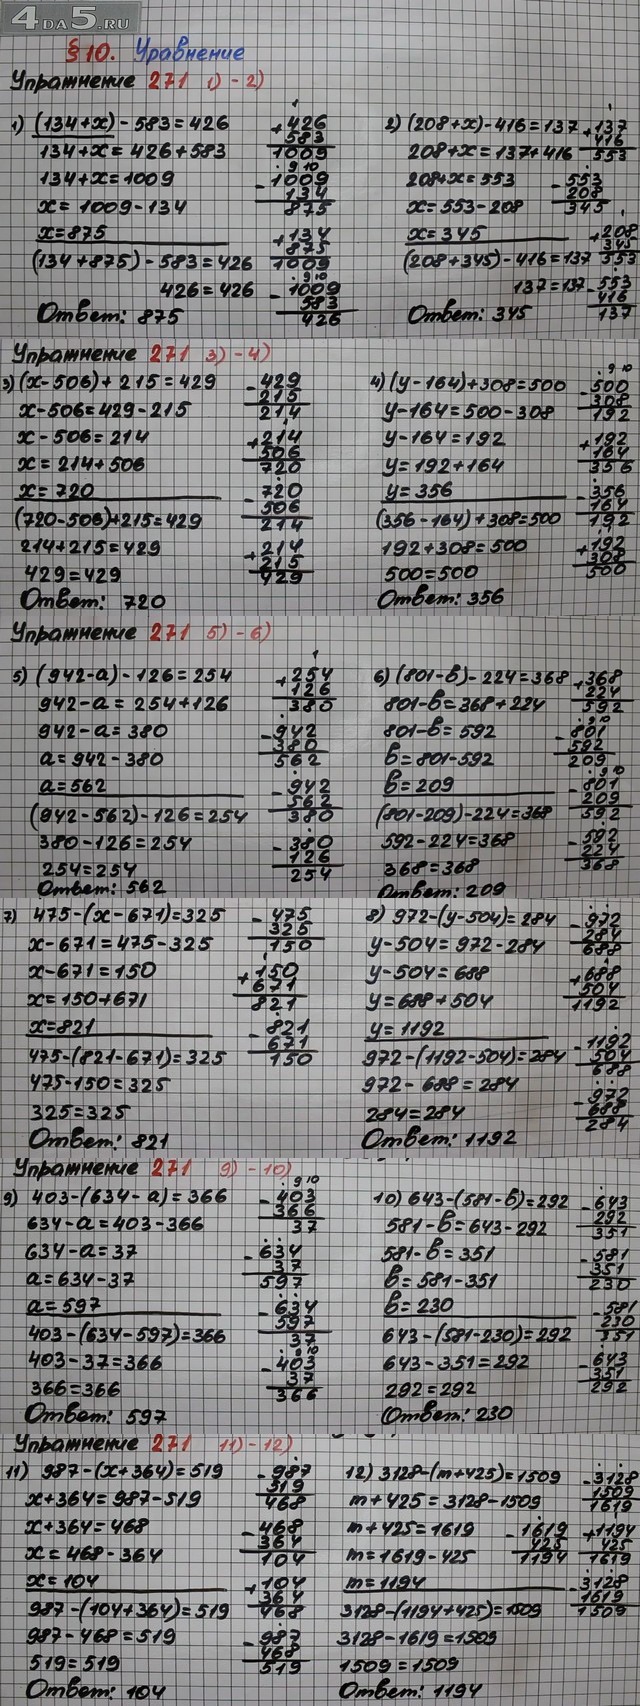 4DA5.RU
§10. Уравнение
Упражнение 271 1) - 2)
1) (134+x) - 583 = 426
134+x = 426 + 583
134+x = 1009
x = 1009 - 134
x = 875
(134+875) - 583 = 426
426 = 426
Ответ: 875
+426
583
1009
9 10
-1009
134
875
+134
875
1009
9 10
-1009
583
426
2) (208+x) - 416 = 137
208+x = 137+416
208+x = 553
x = 553 - 208
x = 345
(208+345) - 416 = 137
137 = 137
Ответ: 345
+137
416
553
-553
208
345
+208
345
553
-553
416
137
Упражнение 271 3) - 4)
3) (x-506) + 215 = 429
x-506 = 429-215
x-506 = 214
x = 214+506
x = 720
(720-506)+215 = 429
214+215 = 429
429 = 429
Ответ: 720
-429
215
214
+214
506
720
-720
506
214
+214
215
429
4) (y-164)+308 = 500
y-164 = 500-308
y-164 = 192
y = 192+164
y = 356
(356-164)+308 = 500
192+308 = 500
500 = 500
Ответ: 356
9 10
-500
308
192
+192
164
356
-356
164
192
+192
308
500
Упражнение 271 5) - 6)
5) (942-a) - 126 = 254
942-a = 254+126
942-a = 380
a = 942-380
a = 562
(942-562)-126 = 254
380-126 = 254
254 = 254
Ответ: 562
+254
126
380
-942
380
562
-942
562
380
-380
126
254
6) (801-b) - 224 = 368
801-b = 368+224
801-b = 592
b = 801-592
b = 209
(801-209)-224 = 368
592-224 = 368
368 = 368
Ответ: 209
+368
224
592
9 10
-801
592
209
9 10
-801
209
592
-592
224
368
7) 475-(x-671) = 325
x-671 = 475-325
x-671 = 150
x = 150+671
x = 821
475-(821-671) = 325
475-150 = 325
325 = 325
Ответ: 821
-475
325
150
+150
671
821
-821
671
150
8) 972-(y-504) = 284
y-504 = 972-284
y-504 = 688
y = 688+504
y = 1192
972-(1192-504) = 284
972-688 = 284
284 = 284
Ответ: 1192
-972
284
688
+688
504
1192
-1192
504
688
-972
688
284
Упражнение 271 9) - 10)
9) 403-(634-a) = 366
634-a = 403-366
634-a = 37
a = 634-37
a = 597
403-(634-597) = 366
403-37 = 366
366 = 366
Ответ: 597
9 10
-403
366
37
-634
37
597
-634
597
37
9 10
-403
37
366
10) 643-(581-b) = 292
581-b = 643-292
581-b = 351
b = 581-351
b = 230
643-(581-230) = 292
643-351 = 292
292 = 292
Ответ: 230
-643
292
351
-581
351
230
-581
230
351
-643
351
292
Упражнение 271 11) - 12)
11) 987-(x+364) = 519
x+364 = 987-519
x+364 = 468
x = 468-364
x = 104
987-(104+364) = 519
987-468 = 519
519 = 519
Ответ: 104
-987
519
468
-468
364
104
+104
364
468
-987
468
519
12) 3128-(m+425) = 1509
m+425 = 3128-1509
m+425 = 1619
m = 1619-425
m = 1194
3128-(1194+425) = 1509
3128-1619 = 1509
1509 = 1509
Ответ: 1194
-3128
1509
1619
-1619
425
1194
+1194
425
1619
-3128
1619
1509